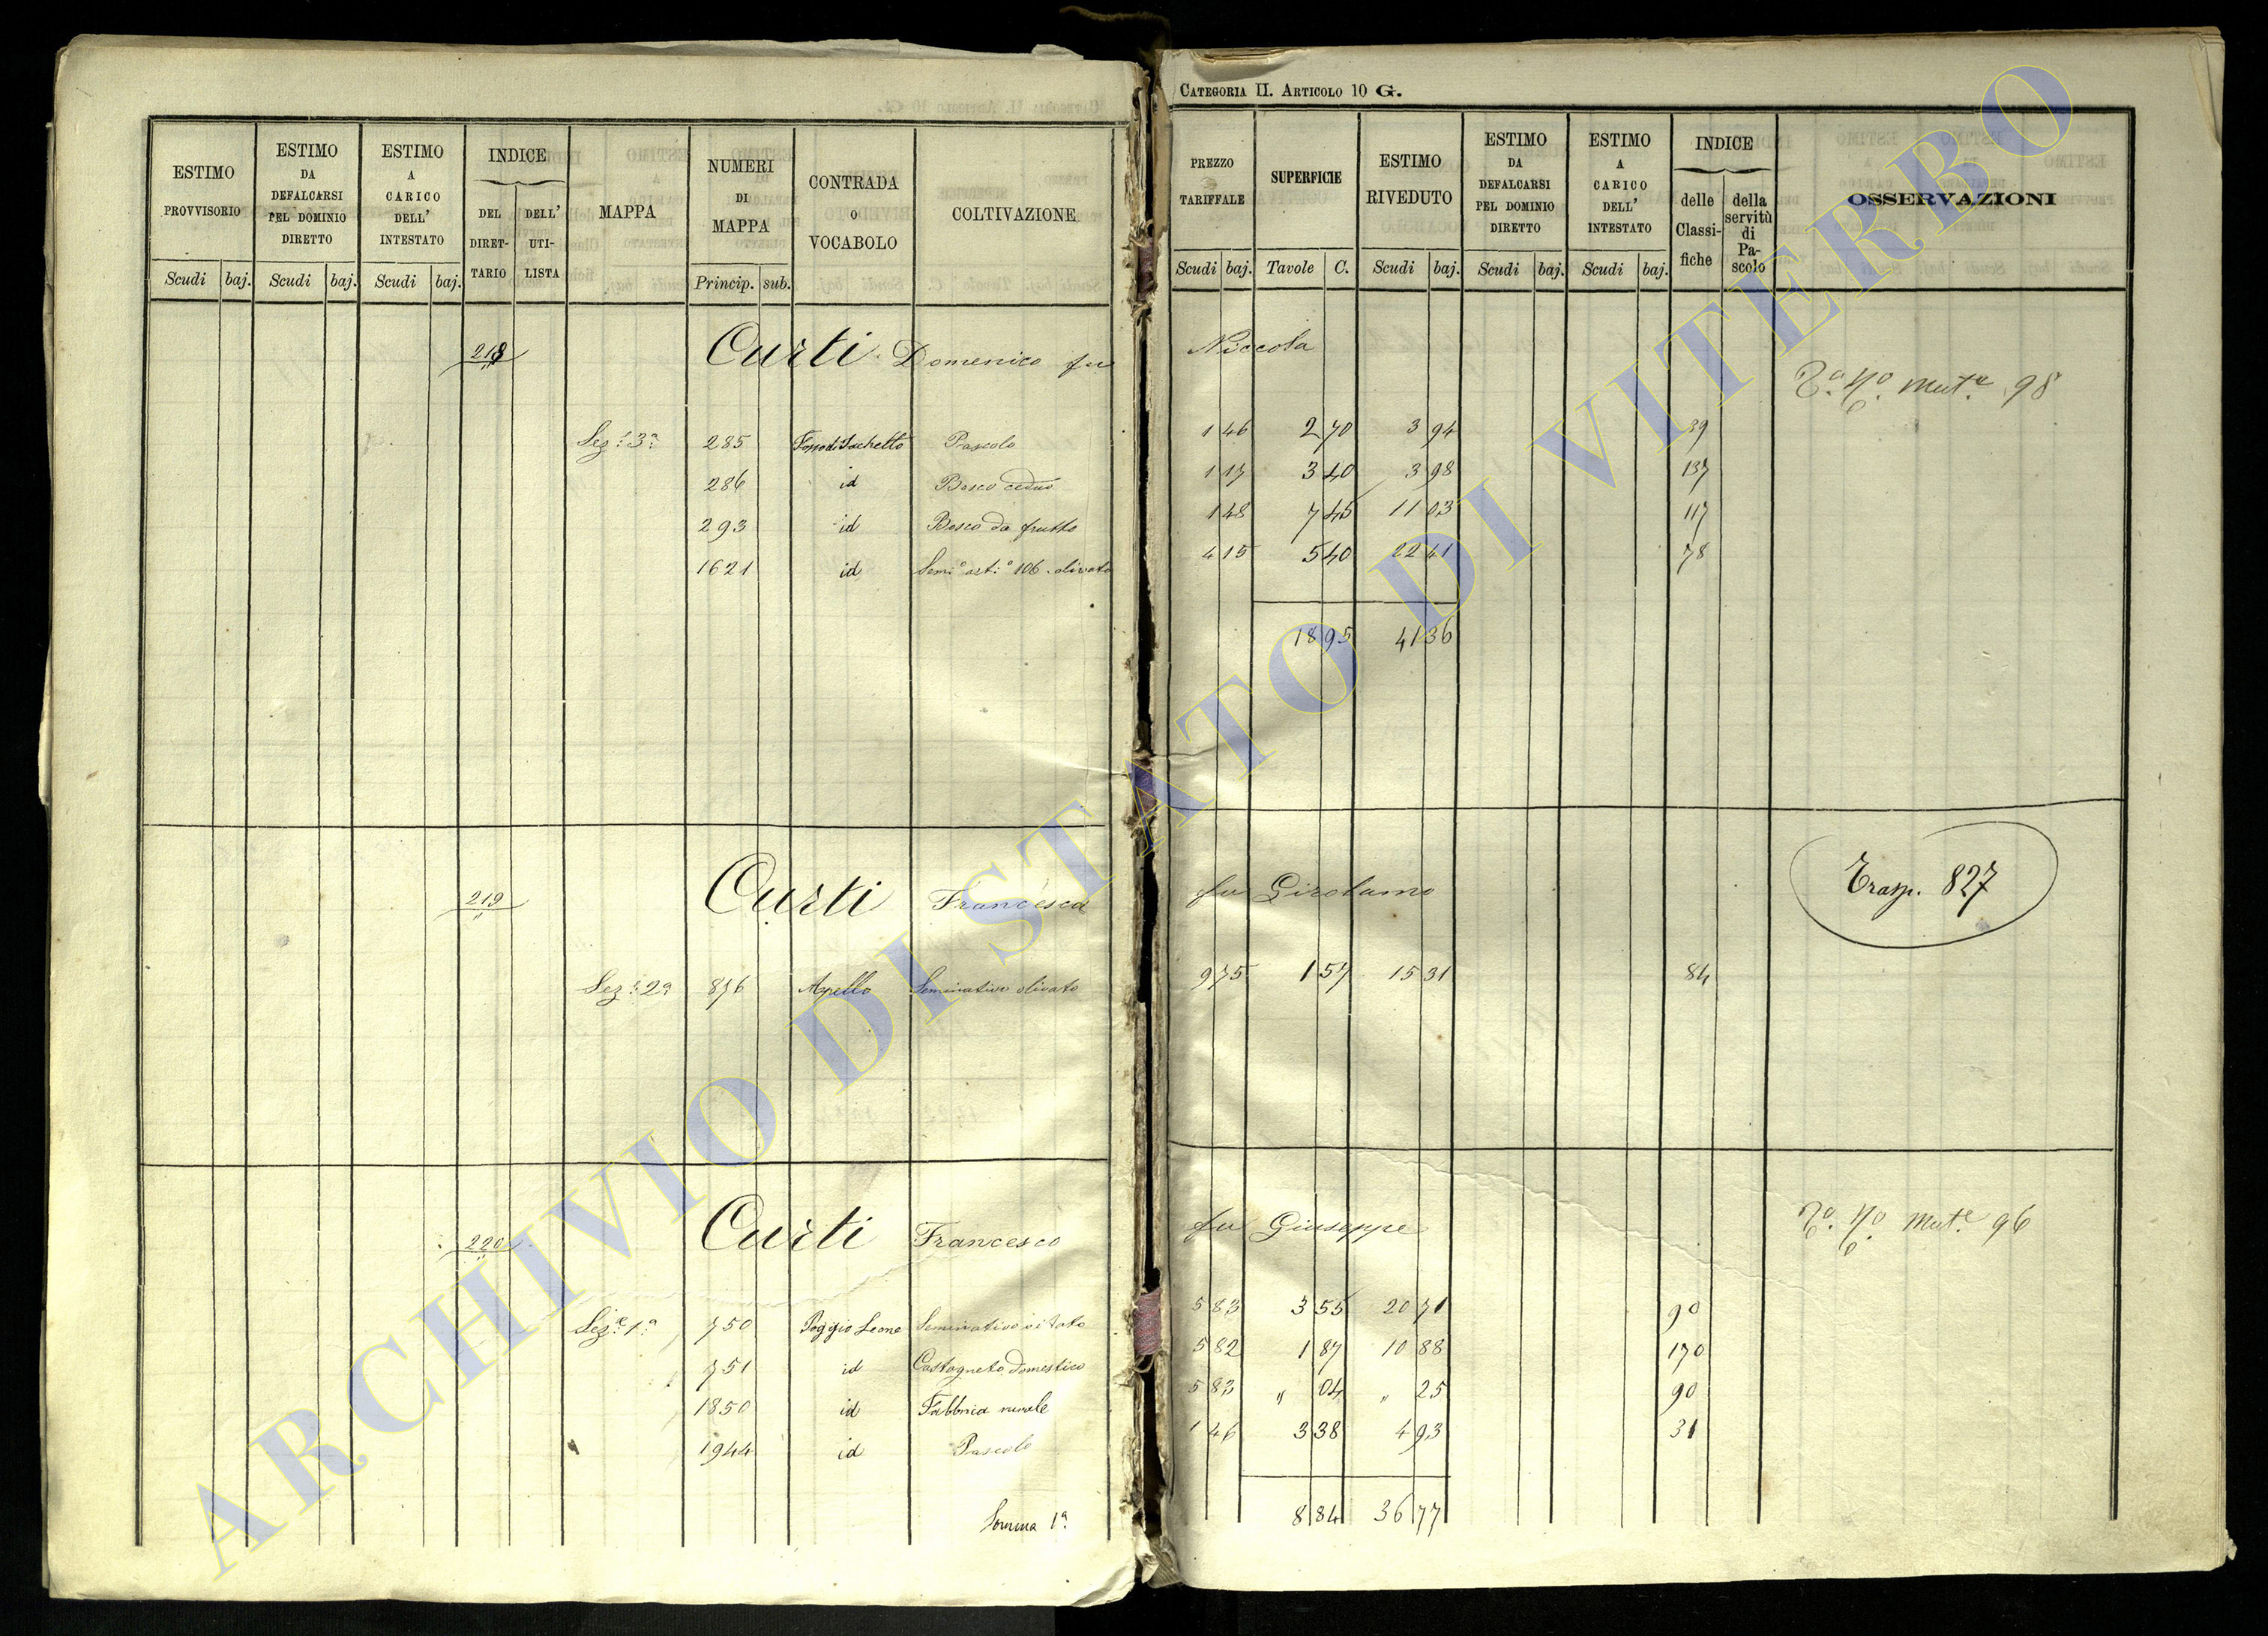 CATEGORIA II. ARTICOLO 10 G.
ESTIMO PROVVISORIO | ESTIMO DA DEFALCARSI PEL DOMINIO DIRETTO | ESTIMO A CARICO DELL' INTESTATO | INDICE DEL DIRETTARIO | DELL' UTILISTA | MAPPA | NUMERI DI MAPPA | CONTRADA O VOCABOLO | COLTIVAZIONE | PREZZO TARIFFALE | SUPERFICIE | ESTIMO RIVEDUTO | ESTIMO DA DEFALCARSI PEL DOMINIO DIRETTO | ESTIMO A CARICO DELL' INTESTATO | INDICE delle Classifiche | della servitù di Pascolo | OSSERVAZIONI
Scudi | baj. | Scudi | baj. | Scudi | baj. | Princip. | sub. | Scudi | baj. | Tavole | C. | Scudi | baj. | Scudi | baj. | Scudi | baj.
218 Curti Domenico fu Niccola
Mut.e 98
Sez.e 3a 285 Pascolo 1 46 2 70 3 94 39
286 id Bosco ceduo 1 17 3 40 3 98 137
293 id Bosco da frutto 1 48 7 45 11 03 117
1621 id olivato 4 15 5 40 22 41 78
18 95 41 36
219 Curti Francesca fu Girolamo
Trasp. 827
Sez.e 2a 876 Apello Seminativo olivato 9 75 1 57 15 31 84
220 Curti Francesco fu Giuseppe
Mut.e 96
Sez.e 1a 750 Poggio Leone Seminativo vitato 5 83 3 55 20 71 90
751 id Castagneto domestico 5 82 1 87 10 88 170
1850 id Fabbrica rurale 5 83 " 04 " 25 90
1944 id Pascolo 1 46 3 38 4 93 31
Somma 1a 8 84 36 77
ARCHIVIO DI STATO DI VITERBO